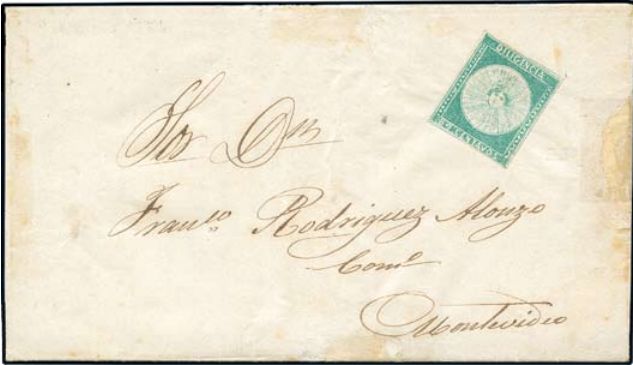 DILIGENCIA
Sor Dn
Franco Rodriguez Alonzo
Como
Montevideo